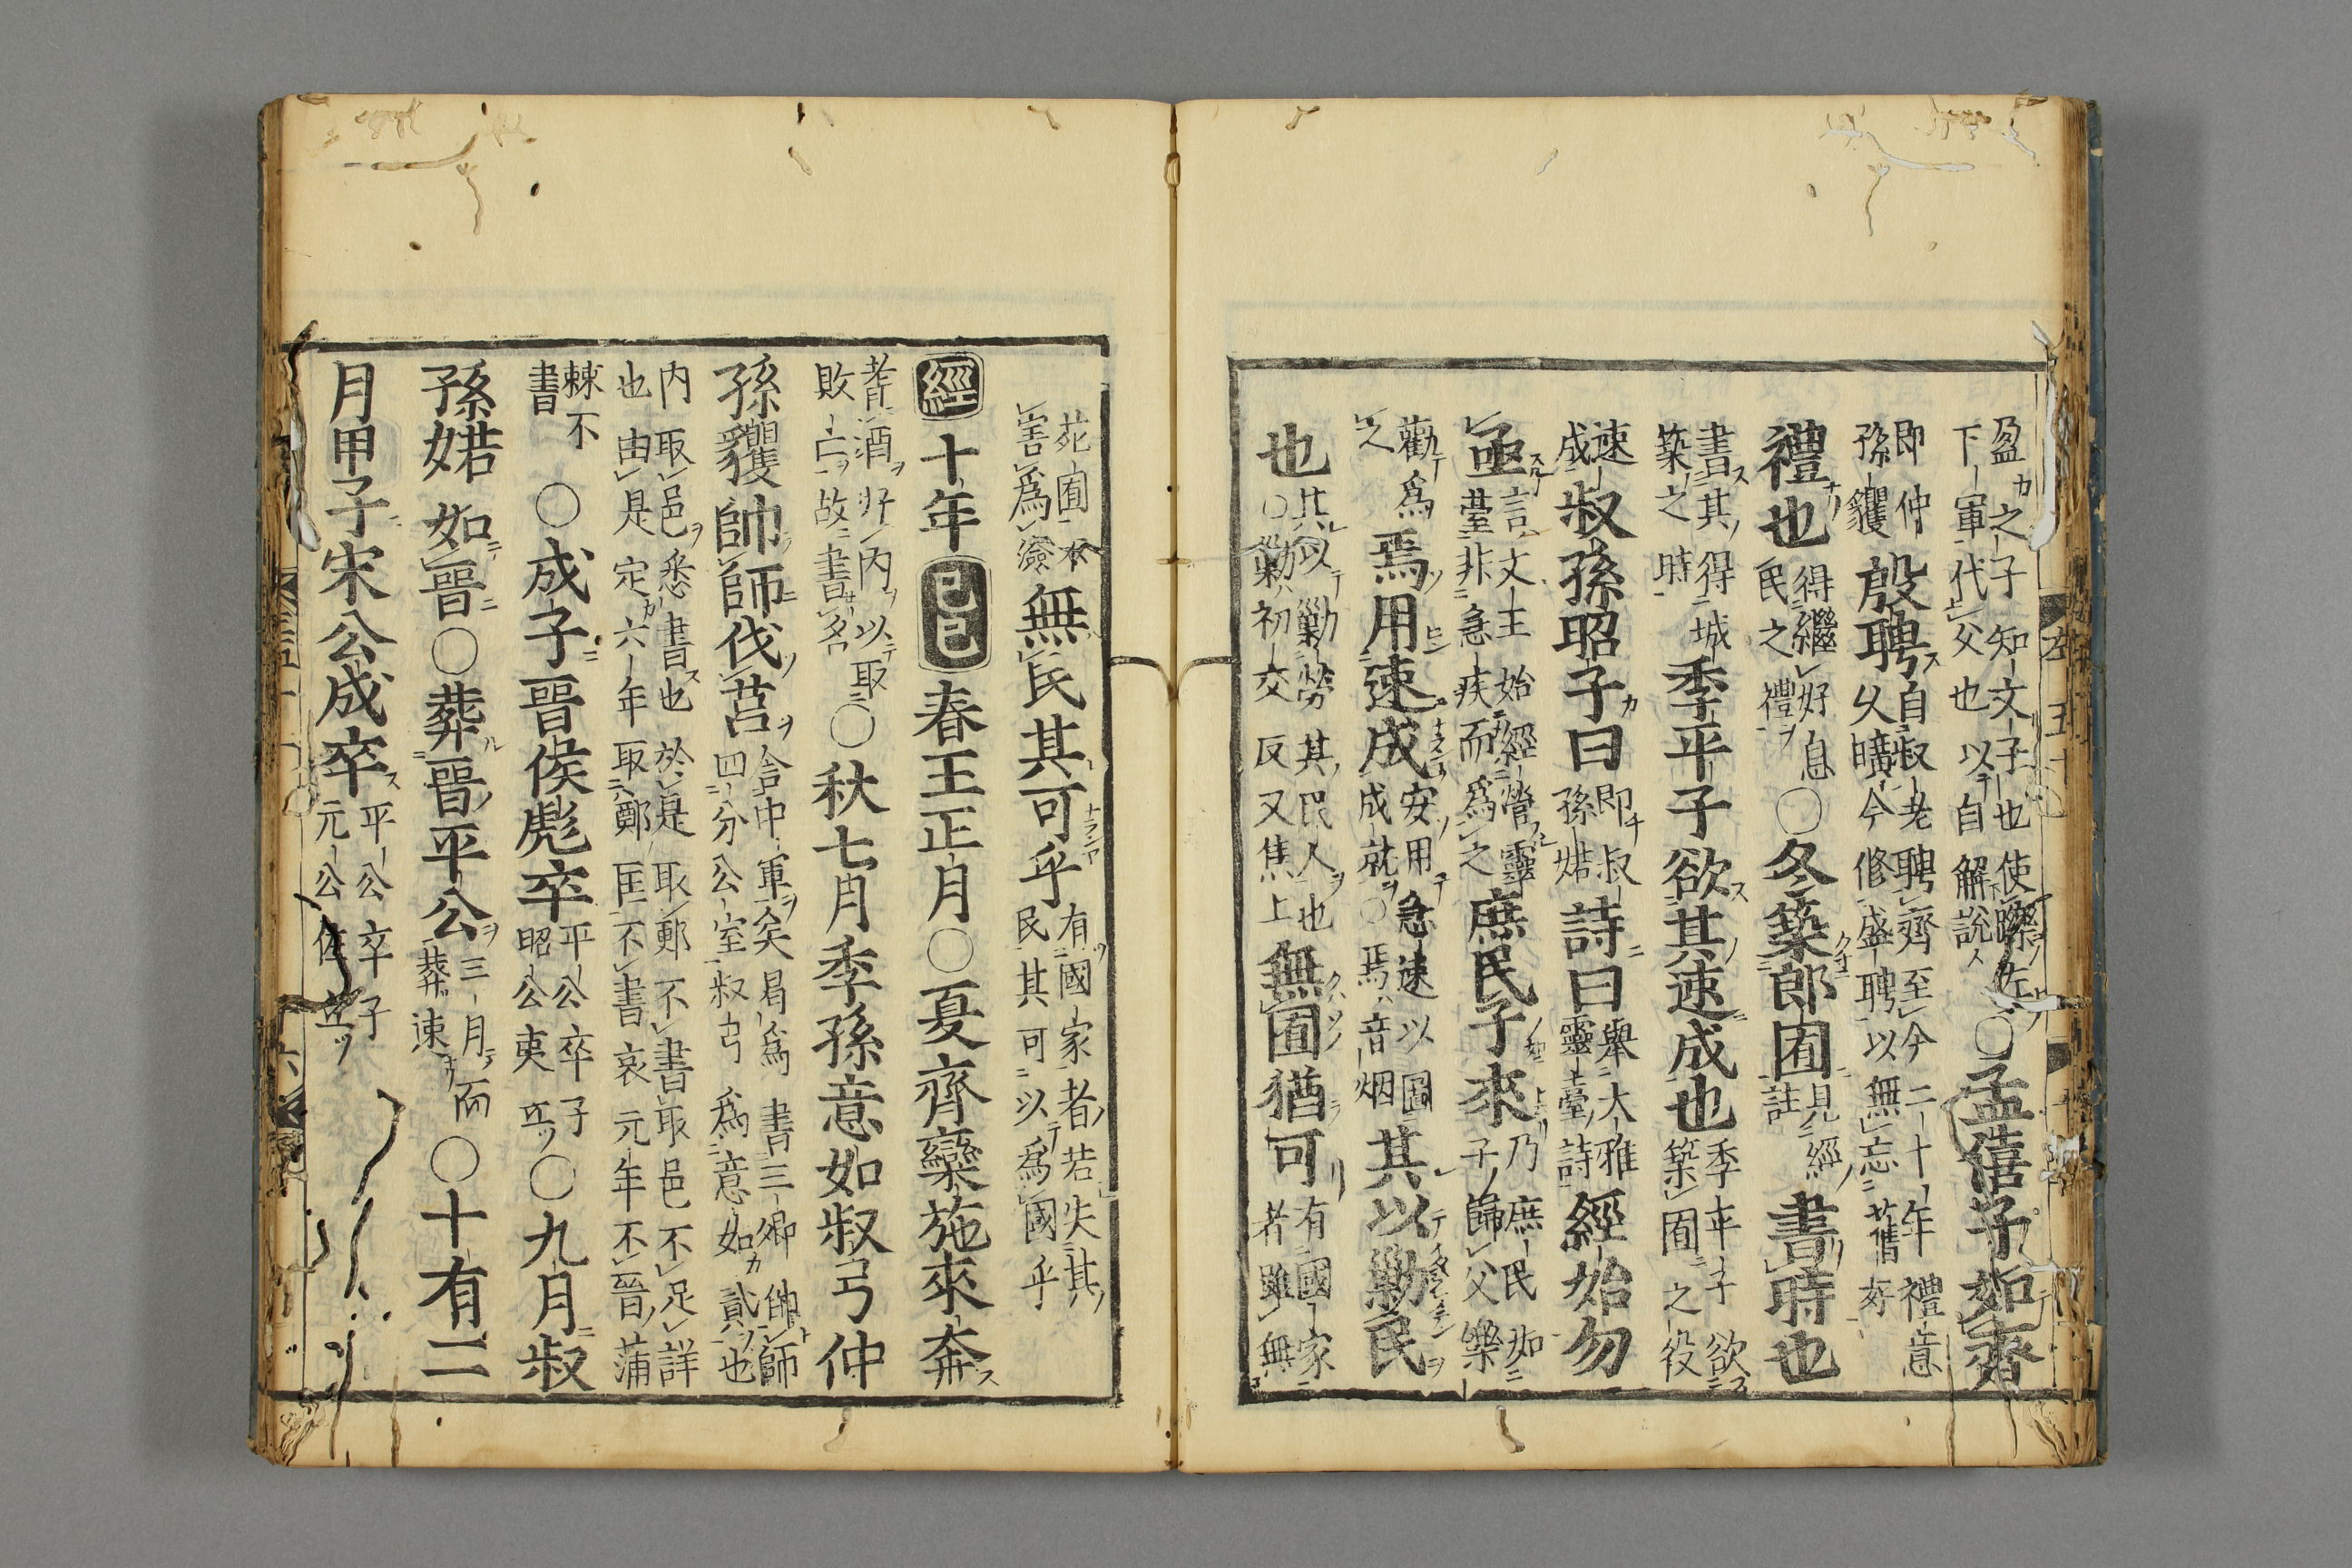 盈之子知文子也使躒佐
下軍代父也以自解說
○孟僖子如齊
即仲孫貜
殷聘
自叔老聘齊至今二十年禮意
久曠今修盛聘以無忘舊好
禮也
得繼好息
民之禮
○冬築郎囿
見經註
書時也
書其得城
築之時
季平子欲其速成也
季平子欲
築囿之役
速成
叔孫昭子曰
即叔
孫婼
詩曰
舉大雅
靈臺詩
經始勿
亟
言文王始經營靈
臺非急疾而為之
庶民子來
乃庶民如
子歸父樂
勸為
之
焉用速成
安用急速以圖
成就○焉音烟
其以勦民
也
其以勦勞其民人也
○勦初交反又焦上
無囿猶可
有國家
者雖無
苑囿本
害為濴
無民其可乎
有國家者若失其
民其可以為國乎
經十年己巳春王正月○夏齊欒施來奔
耆酒好內以取
敗亡故書名
○秋七月季孫意如叔弓仲
孫貜帥師伐莒
舍中軍矣曷為書三卿帥師
四分公室叔弓為意如貳也
內取邑悉書也於是取鄆不書取邑不足詳
也由是定六年取鄭匡不書哀元年不晉蒲
棘不
書
○戊子晉侯彪卒
平公卒子
昭公夷立
○九月叔
孫婼如晉○葬晉平公
三月而
葬速
○十有二
月甲子宋公成卒
平公卒子
元公佐立